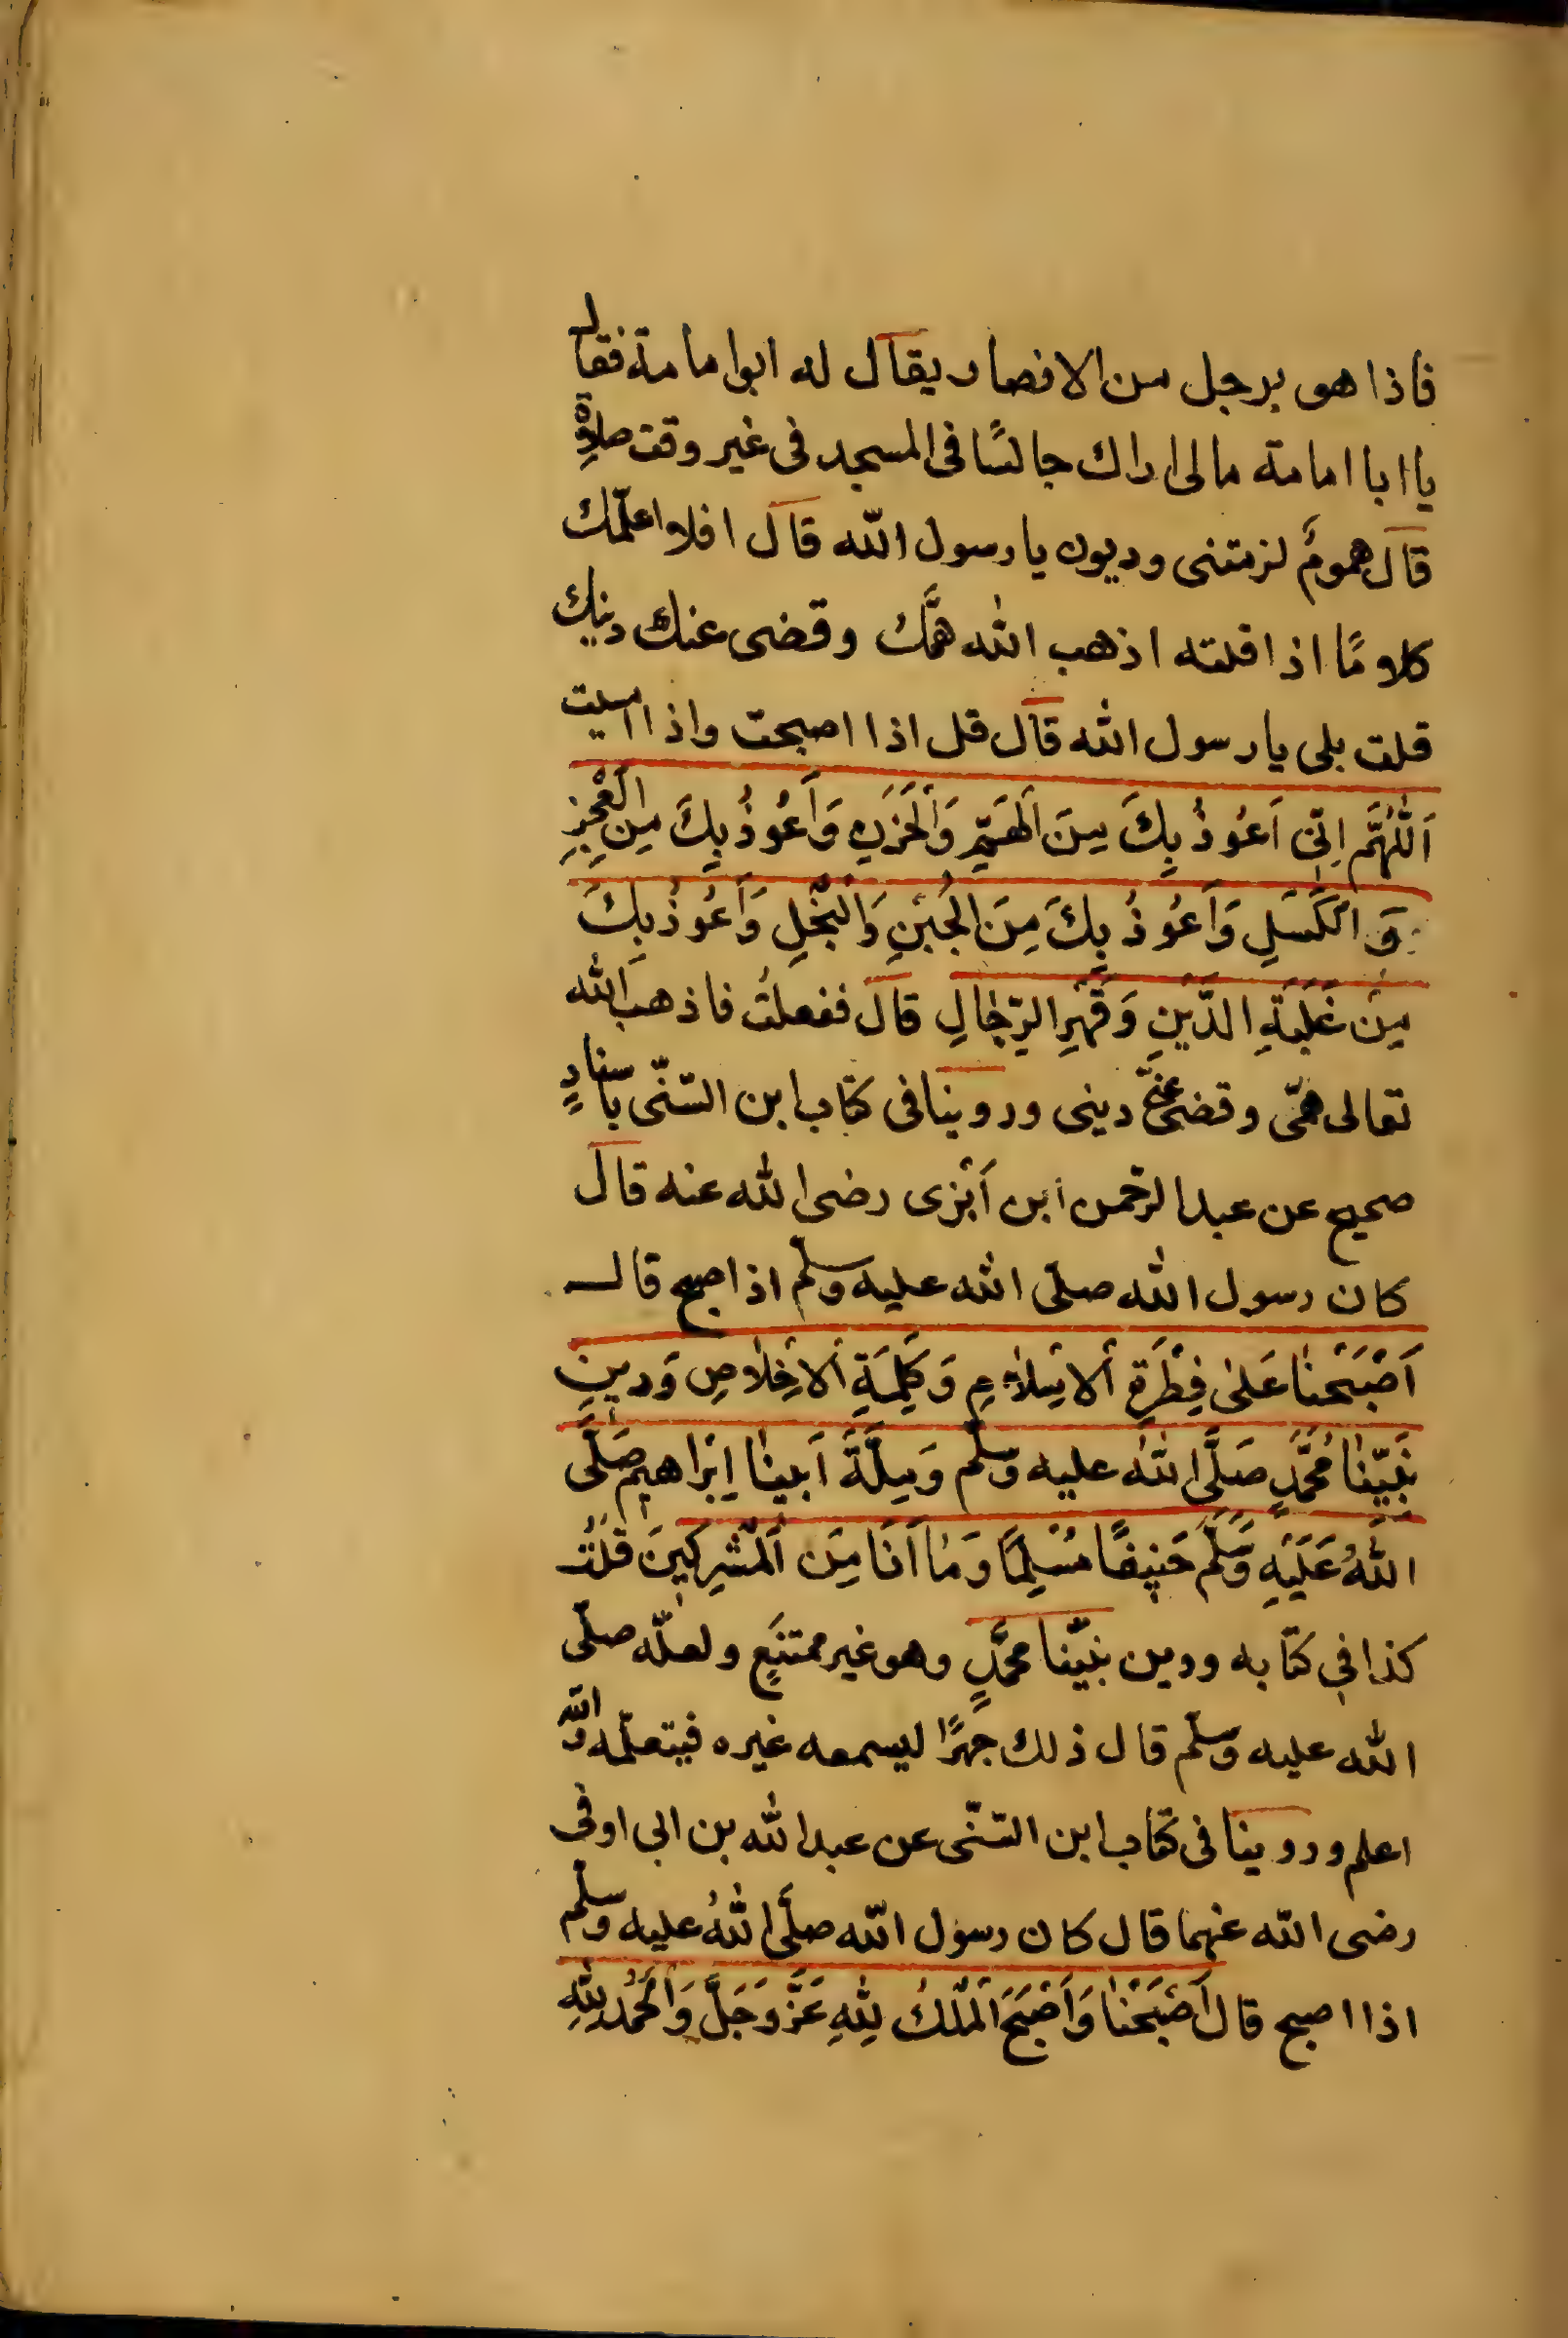 فاذا هو برجل من الانصار يقال له ابوا مامة فقال
يا ابا امامة مالى اراك جالسًا فى المسجد فى غير وقت صلاةٍ
قال همومٌ لزمتنى وديون يا رسول اللّه قال افلا اعلّمك
كلامًا اذا قلته اذهب اللّه همَّك وقضى عنك دينك
قلت بلى يا رسول اللّه قال قل اذا اصبحت واذا امسيت
اَللّٰهُمَّ اِنّى اَعُوذُ بِكَ مِنَ اَلْهَمِّ وَاَلْحَزَنِ وَاَعُوذُ بِكَ مِنَ الْعَجْزِ
وَ الْكَسَلِ وَاَعُوذُ بِكَ مِنَ الْجُبْنِ وَالْبُخْلِ وَاَعُوذُ بِكَ
مِنْ غَلَبَةِ الدَّيْنِ وَقَهْرِ الرِّجٰالِ قال ففعلتُ فاذهب اللّه
تعالى همّى وقضى عنّى دينى وروينا فى كتاب ابن السّنّى باسنادٍ
صحيح عن عبد الرحمن ابن اَبْزى رضى اللّه عنه قال
كان رسول اللّه صلّى اللّه عليه وسلّم اذا اصبح قال
اَصْبَحْنٰا عَلىٰ فِطْرَةِ اْلاِسْلاٰمِ وَكَلِمَةِ اْلاِخْلاٰصِ وَدينِ
نَبِيّنٰا مُحَمَّدٍ صَلَّى اللّٰه عليه وسلّم وَمِلَّةَ اَبينٰا اِبْرٰاهيمَ صَلَّى
اللّٰهُ عَلَيْهِ وَسَلَّمَ حَنيفًا مُسْلِمًا وَمٰا اَنَا مِنَ اَلْمُشْرِكينَ قُلْتُ
كذا فى كتابه ودين نبيّنا محمّدٍ وهو غير ممتنعٍ ولعلّه صلّى
اللّه عليه وسلّم قال ذلك جهرًا ليسمعه غيره فيتعلّمه واللّه
اعلم وروينا فى كتاب ابن السّنّى عن عبد اللّه بن ابى اوفى
رضى اللّه عنهما قال كان رسول اللّه صلَّى اللّٰهُ عليه وسلّم
اذا اصبح قال اَصْبَحْنٰا وَاَصْبَحَ اَلْمُلْكُ لِلّٰهِ عَزَّوَجَلَّ وَاَلْحَمْدُ لِلّٰهِ